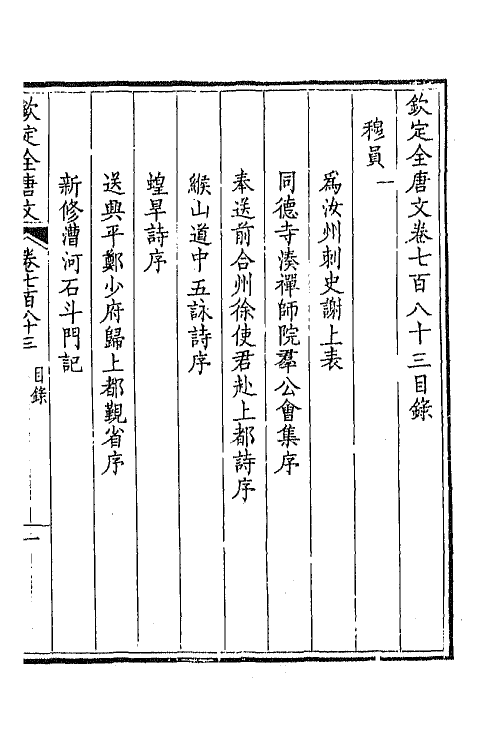 欽定全唐文卷七百八十三目錄
穆員一
爲汝州刺史謝上表
同德寺湊禪師院羣公會集序
奉送前合州徐使君赴上都詩序
緱山道中五詠詩序
蝗旱詩序
送興平鄭少府歸上都覲省序
新修漕河石斗門記
欽定全唐文
卷七百八十三
目錄
一